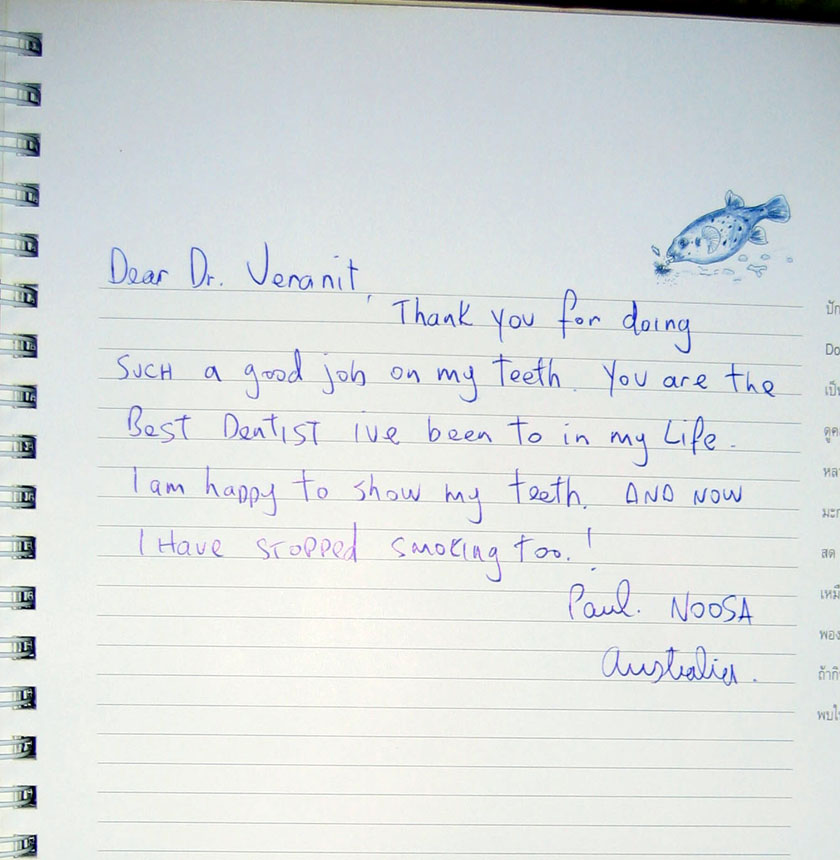 Dear Dr. Veranit,
Thank you for doing
SUCH a good job on my teeth. You are the
Best DentIST ive been to in my Life.
I am happy to show my teeth. AND NOW
I Have stopped smoking too.!
Paul. NOOSA
Australia.
ปัก
Do
เป็น
ดูค
หลา
มะก
สด
เหมื
พอง
ถ้ากิ
พบใ